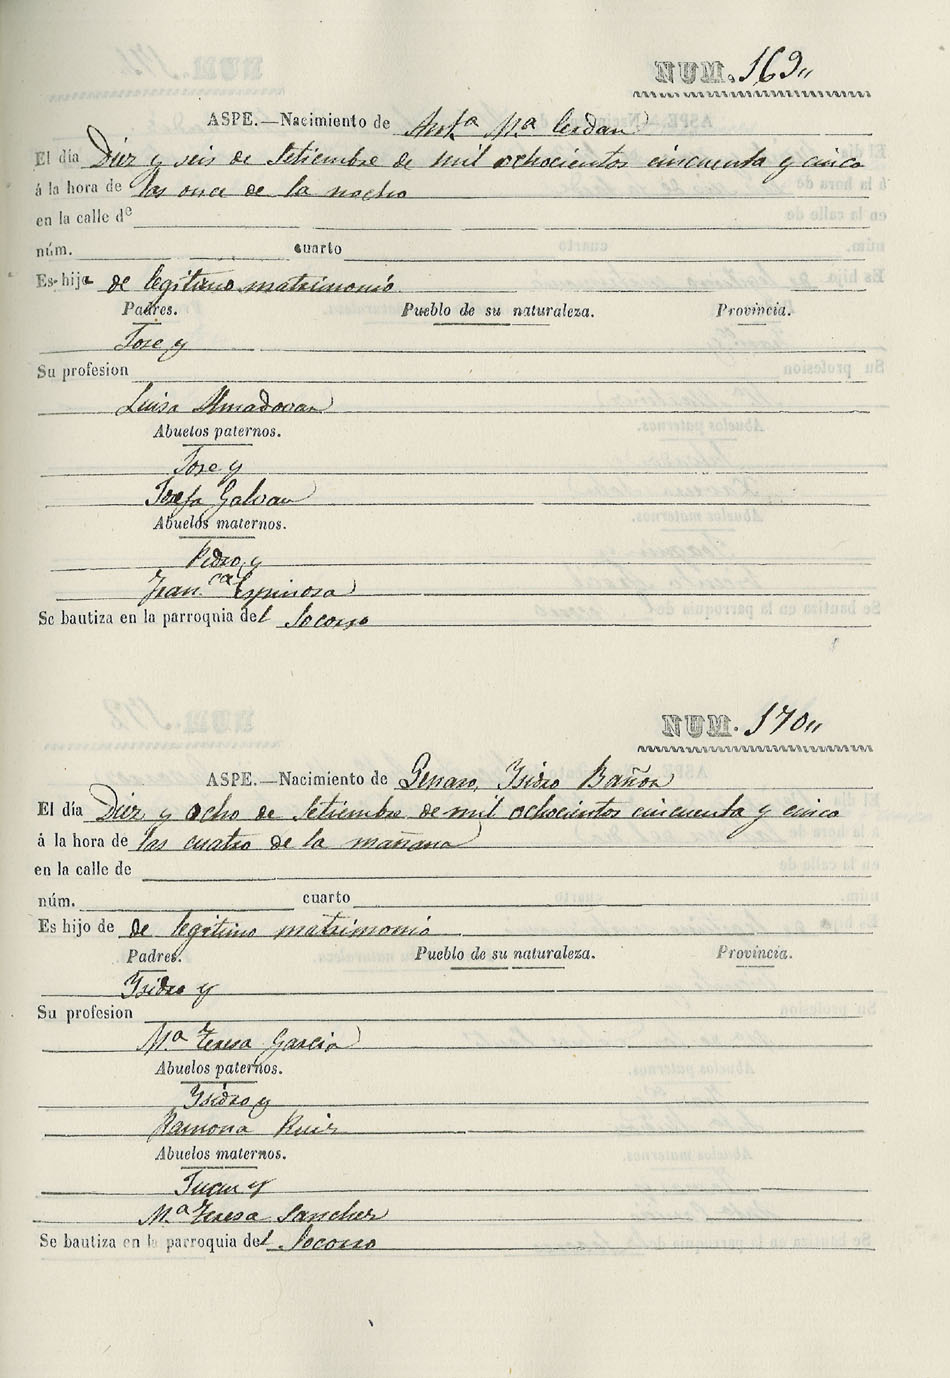 NUM. 169"
ASPE.—Nacimiento de Ant.ª M.ª Cerdan
El día Diez y seis de Setiembre de mil ochocientos cincuenta y cinco
á la hora de las once de la noche
en la calle de
núm. cuarto
Es hija de legitimo matrimonio
Padres. Pueblo de su naturaleza. Provincia.
Jose y
Su profesion
Luisa Almadovar
Abuelos paternos.
Jose y
Josefa Galvan
Abuelos maternos.
Pedro y
Fran.ca Espinosa
Se bautiza en la parroquia del Socorro
NUM. 170"
ASPE.—Nacimiento de Genaro, Ysidro Bañon
El día Diez y ocho de Setiembre de mil ochocientos cincuenta y cinco
á la hora de las cuatro de la mañana
en la calle de
núm. cuarto
Es hijo de de legitimo matrimonio
Padres. Pueblo de su naturaleza. Provincia.
Ysidro y
Su profesion
M.ª Teresa Garcia
Abuelos paternos.
Ysidro y
Ramona Ruiz
Abuelos maternos.
Juan y
M.ª Teresa Sanchez
Se bautiza en la parroquia del Socorro